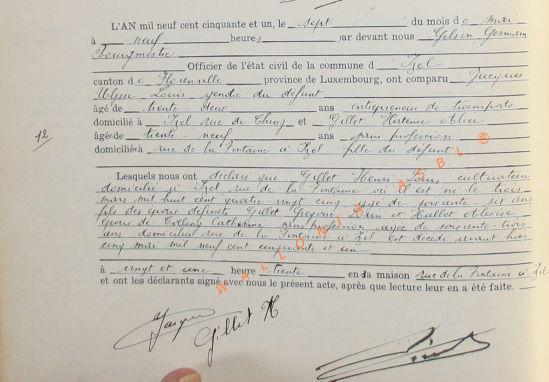 L'AN mil neuf cent cinquante et un, le sept du mois de mai
à neuf heures, par devant nous Gilson Germain
Bourgmestre
Officier de l'état civil de la commune d'Izel
canton de Florenville province de Luxembourg, ont comparu Jacques
Ulysse Louis gendre du défunt
âgé de trente-deux ans entrepreneur de transports
domicilié à Izel rue de Chiny et Gillet Hortence Alice
âgée de trente-neuf ans sans profession
domiciliée rue de la Fontaine à Izel fille du défunt
Lesquels nous ont déclaré que Gillet Henri Louis cultivateur
domicilié à Izel rue de la Fontaine où il est né le trois
mars mil huit cent quatre vingt cinq, âgé de soixante six ans
fils des époux défunts Gillet et
époux de Catherine sans profession âgée de soixante trois
ans domiciliée rue de la Fontaine à Izel est décédé avant hier
cinq mai mil neuf cent cinquante et un
à vingt et une heure trente en sa maison rue de la Fontaine à Izel
et ont les déclarants signé avec nous le présent acte, après que lecture leur en a été faite.
12
WALLONIS ASBL ®
Jacques
Gillet H